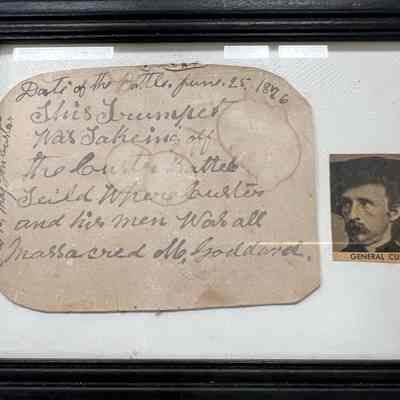 Date of the Battle June. 25. 1876
This Trumpet
Was Takeing off
the Custer Battel
Feild Where Custer
and his men Was all
Massacred M. Goddard.
GENERAL CU